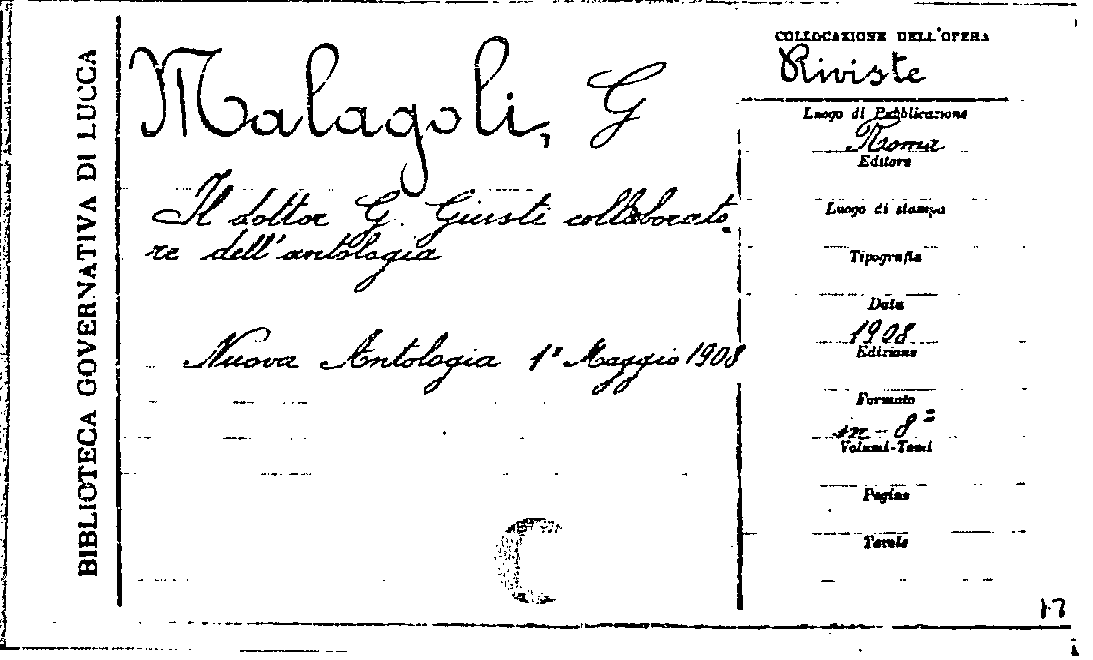 BIBLIOTECA GOVERNATIVA DI LUCCA
Malagoli, G
Il dottor G. Giusti collaborato
re dell'antologia
Nuova Antologia 1° Maggio 1908
C
COLLOCAZIONE DELL'OPERA
Riviste
Luogo di Pubblicazione
Roma
Editore
Luogo di stampa
Tipografia
Data
1908
Edizione
Formato
in-8°
Volumi-Tomi
Pagine
Tavole
17